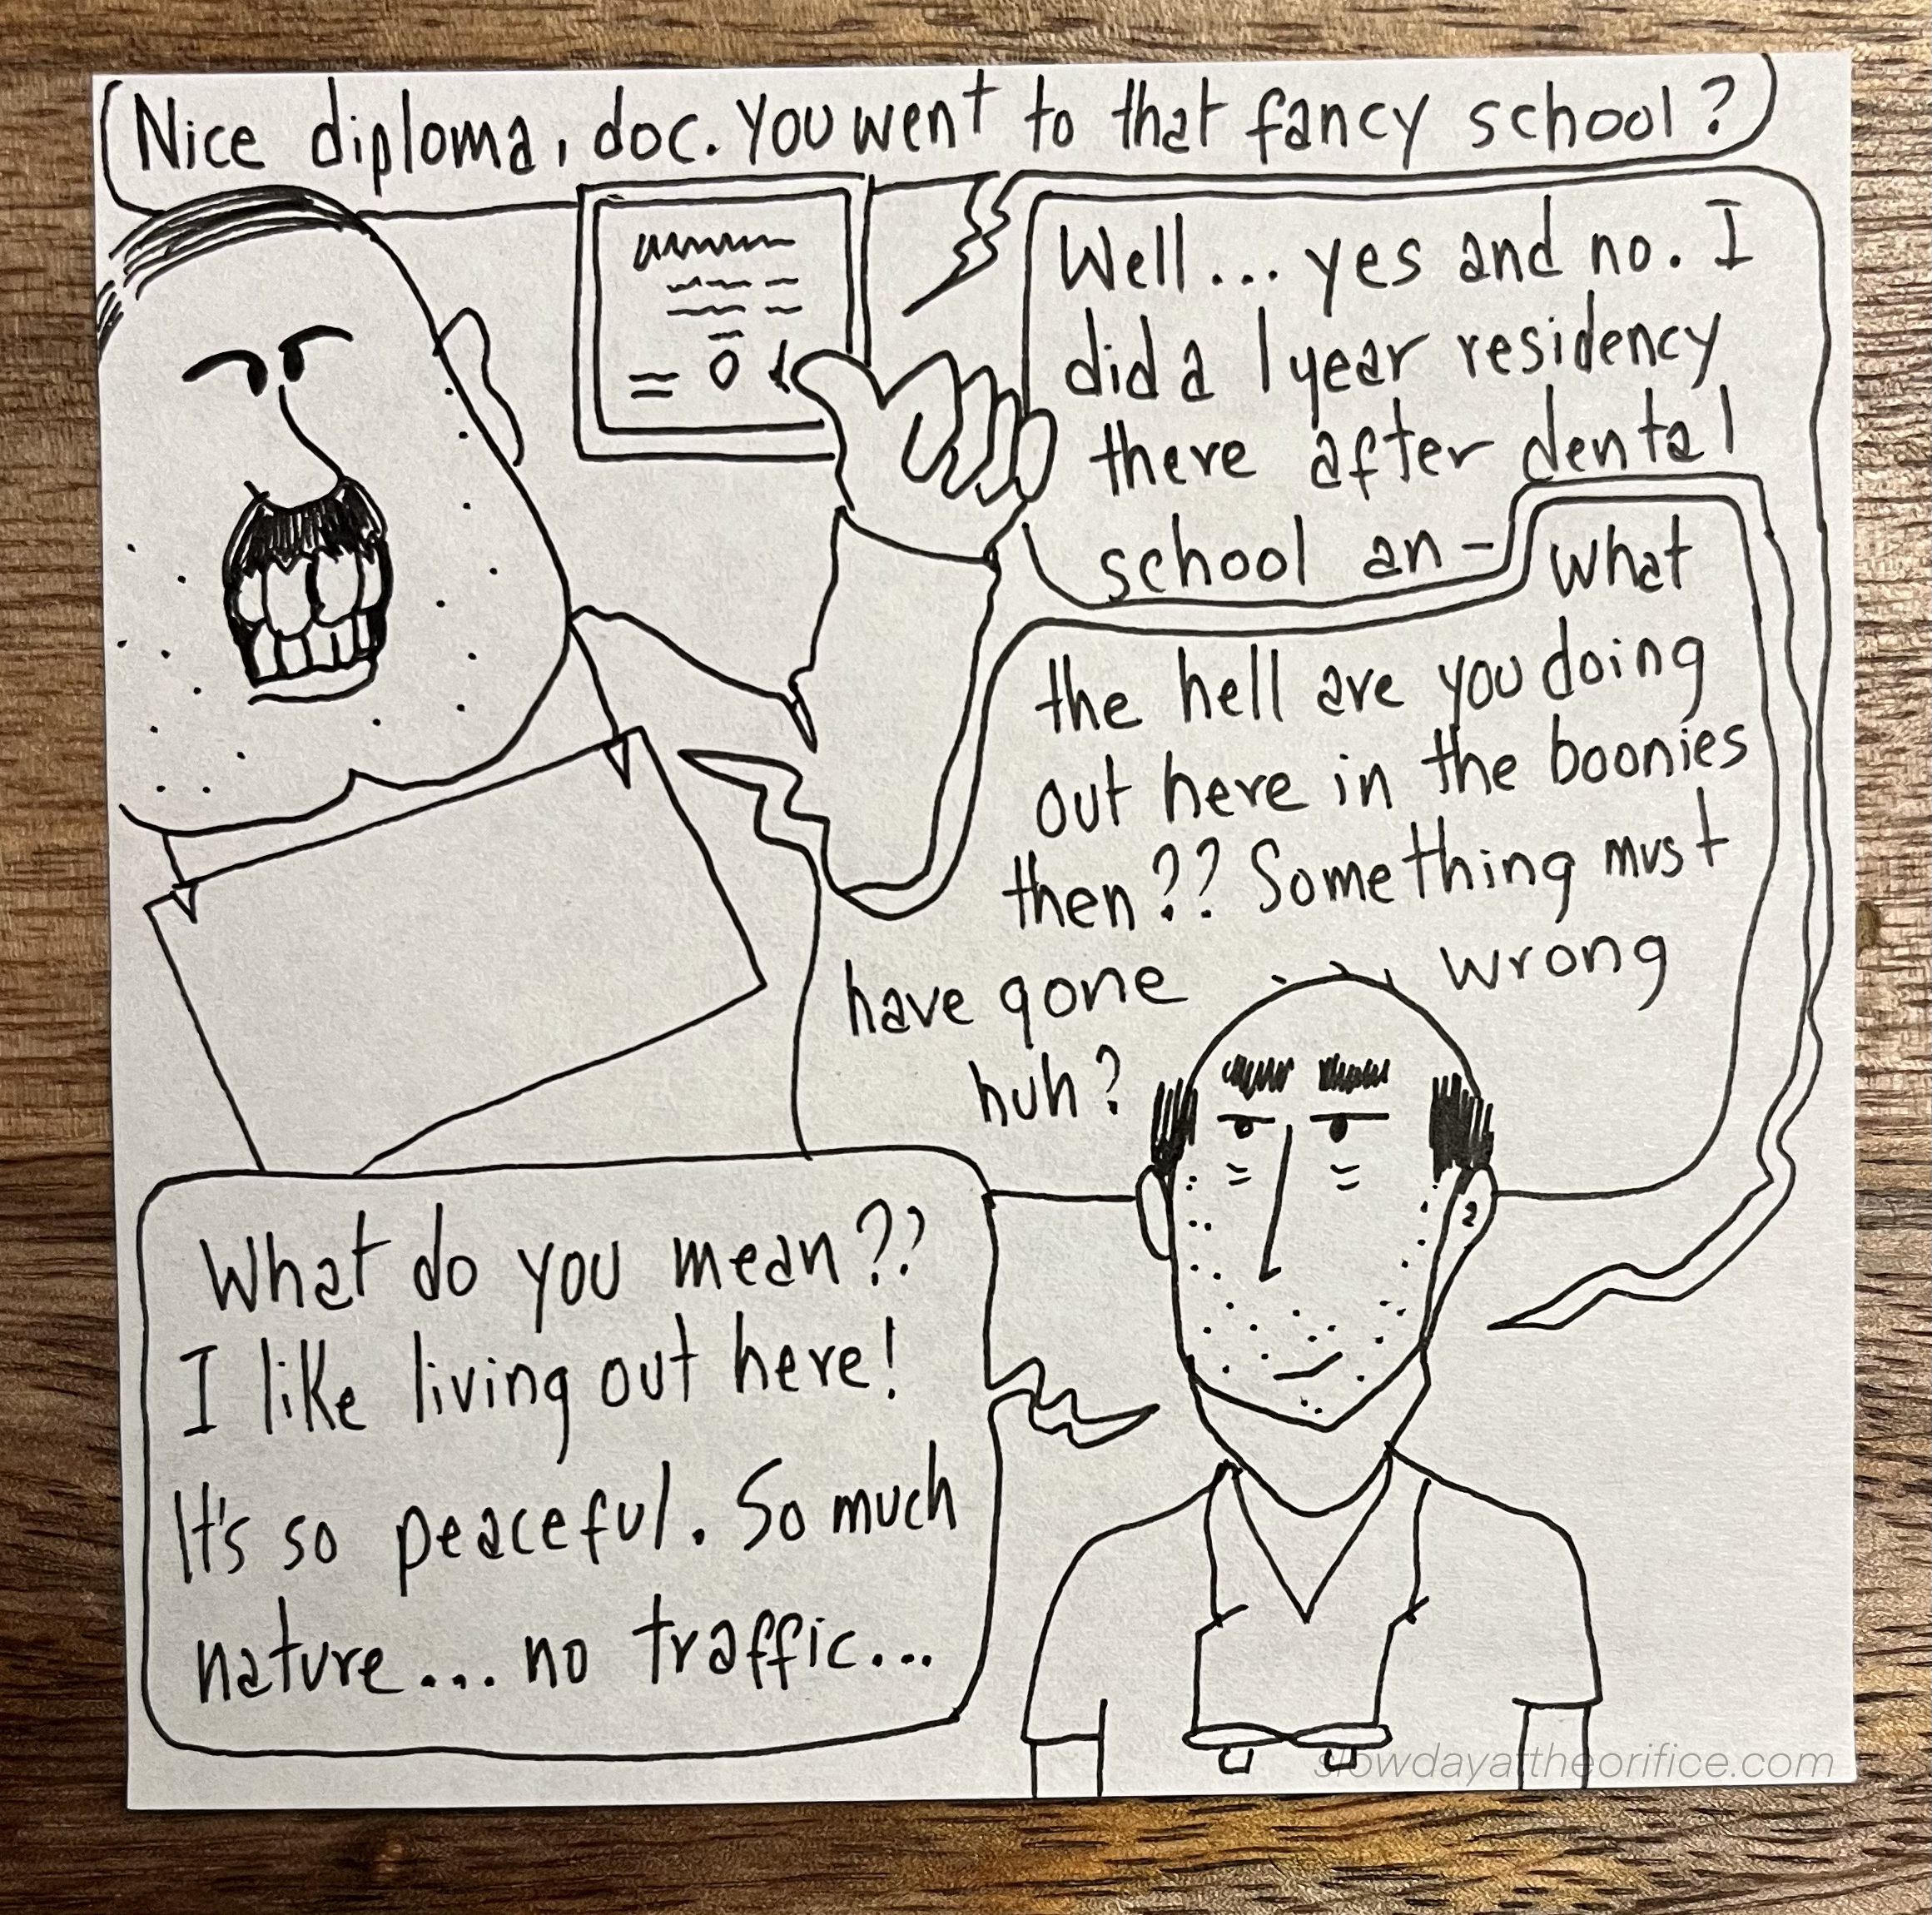 Nice diploma, doc. You went to that fancy school?
Well... yes and no. I
did a 1 year residency
there after dental
school an-
What
the hell are you doing
out here in the boonies
then?? Something must
have gone wrong
huh?
What do you mean??
I like living out here!
It's so peaceful. So much
nature... no traffic...
slowdayattheorifice.com